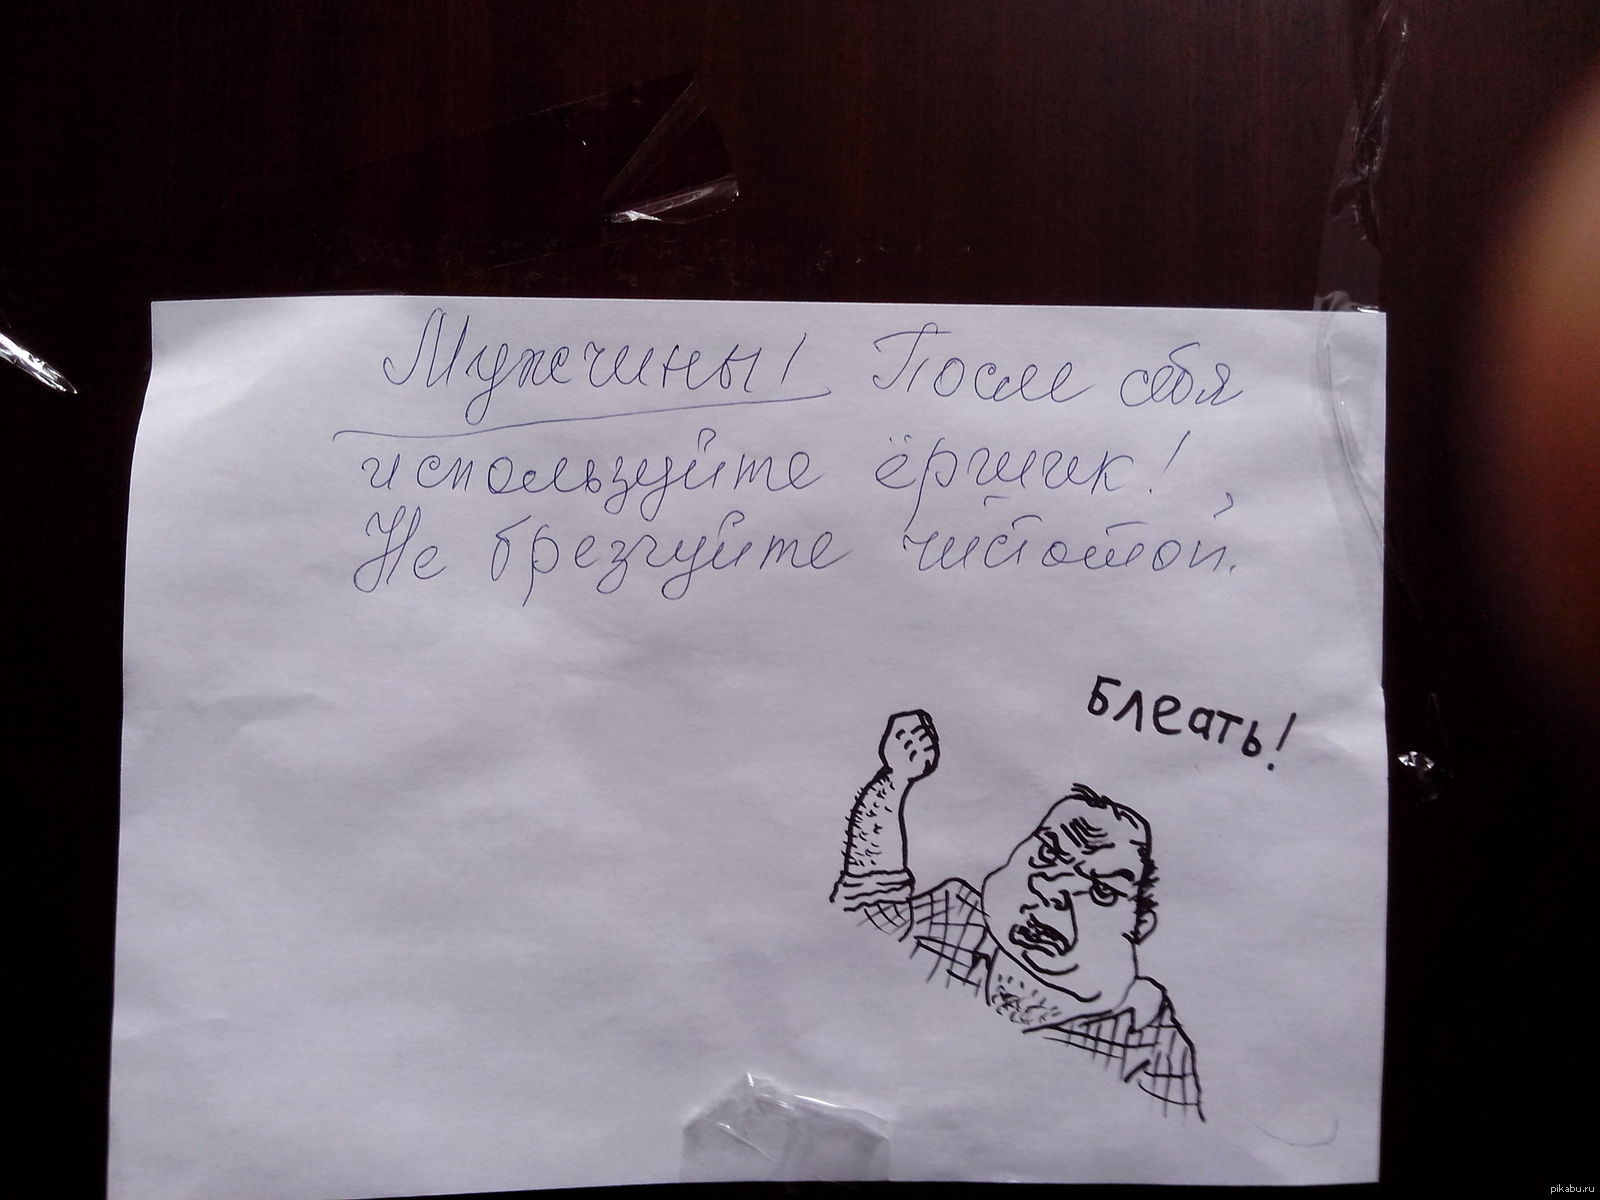 Мужчины! После себя
используйте ёршик!
Не брезгуйте чистотой.
Блеать!
pikabu.ru